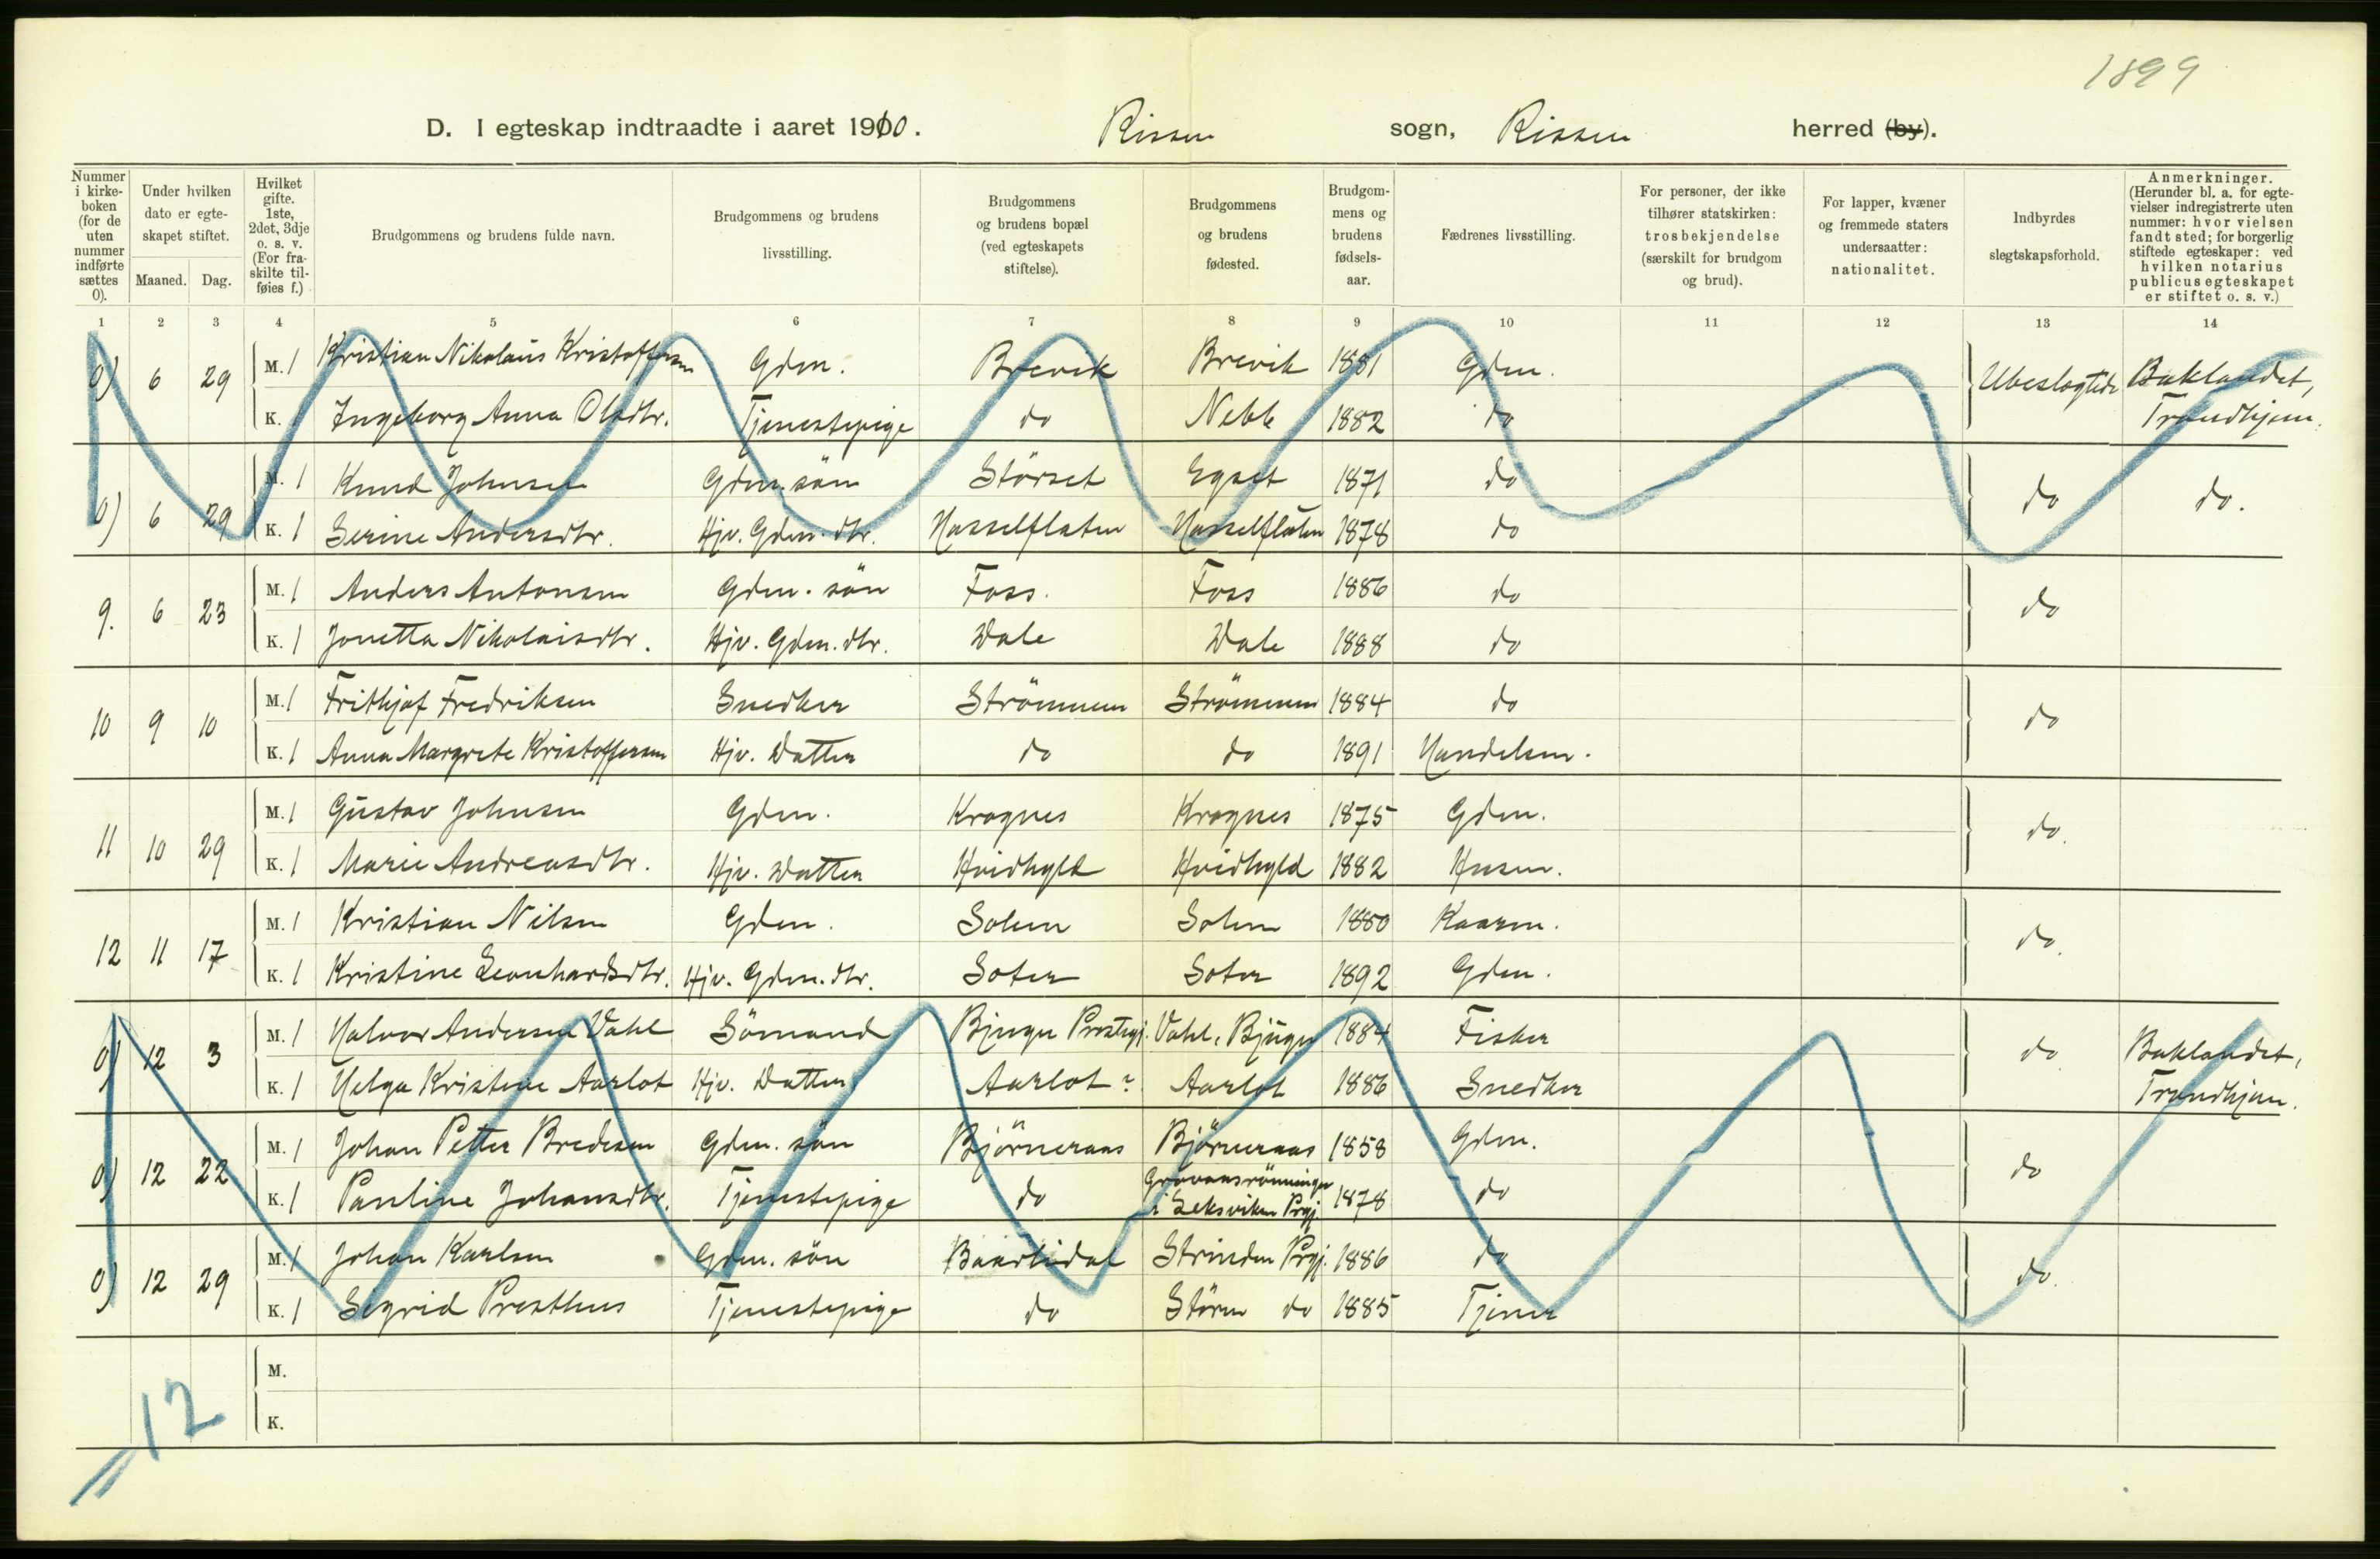 1899
D. I egteskap indtraadte i aaret 1910. Rissen sogn, Rissen herred (by).
Nummer i kirkeboken (for de uten nummer indførte sættes 0).
Under hvilken dato er egteskapet stiftet.
Maaned. Dag.
Hvilket gifte. 1ste, 2det, 3dje o. s. v. (For fraskilte tilføies f.)
Brudgommens og brudens fulde navn.
Brudgommens og brudens livsstilling.
Brudgommens og brudens bopæl (ved egteskapets stiftelse).
Brudgommens og brudens fødested.
Brudgommens og brudens fødselsaar.
Fædrenes livsstilling.
For personer, der ikke tilhører statskirken: trosbekjendelse (særskilt for brudgom og brud).
For lapper, kvæner og fremmede staters undersaatter: nationalitet.
Indbyrdes slegtskapsforhold.
Anmerkninger. (Herunder bl. a. for egtevielser indregistrerte uten nummer: hvor vielsen fandt sted; for borgerlig stiftede egteskaper: ved hvilken notarius publicus egteskapet er stiftet o. s. v.)
1 2 3 4 5 6 7 8 9 10 11 12 13 14
0) 6 29 M. 1 Kristian Nikolaus Kristoffersen Gdm. Brevik Brevik 1881 Gdm. Ubeslægtede Baklandet,
K. 1 Ingeborg Anna Olsdtr. Tjenestepige do Nebb 1882 do Trondhjem.
0) 6 29 M. 1 Knud Johnsen Gdm. sön Störset Egset 1871 do do do.
K. 1 Serine Andersdtr. Hjv. Gdm. dtr. Hasselflaten Hasselflaten 1878 do
9. 6 23 M. 1 Anders Antonsen Gdm. sön Foss. Foss 1886 do do
K. 1 Jonetta Nikolaisdtr. Hjv. Gdm. dtr. Dale Dale 1888 do
10 9 10 M. 1 Frithjof Fredriksen Snedker Strömmen Strömmen 1884 do do
K. 1 Anna Margrete Kristoffersen Hjv. Datter do do 1891 Handelsm.
11 10 29 M. 1 Gustav Johnsen Gdm. Kragnes Kragnes 1875 Gdm. do.
K. 1 Marie Andreasdtr. Hjv. Datter Hvidhyld Hvidhyld 1882 Husm.
12 11 17 M. 1 Kristian Nilsen Gdm. Solem Solem 1880 Kaarm. do.
K. 1 Kristine Leonhardsdtr. Hjv. Gdm. dtr. Soter Soter 1892 Gdm.
0) 12 3 M. 1 Halvor Andersen Vahl Sömand Bjugn Prestegj. Vahl, Bjugn 1884 Fisker do Baklandet,
K. 1 Helga Kristine Aarlot Hjv. Datter Aarlot ? Aarlot 1886 Snedker Trondhjem.
0) 12 22 M. 1 Johan Petter Bredesen Gdm. sön Björneraas Björneraas 1858 Gdm. do
K. 1 Pauline Johansdtr. Tjenestepige do i Leksviken Prgj. 1878 do
0) 12 29 M. 1 Johan Karlsen Gdm. sön Baardsdal Strinden Prgj. 1886 do do.
K. 1 Sigrid Presthus Tjenestepige do Stören do 1885 Tjener
M.
K.
12